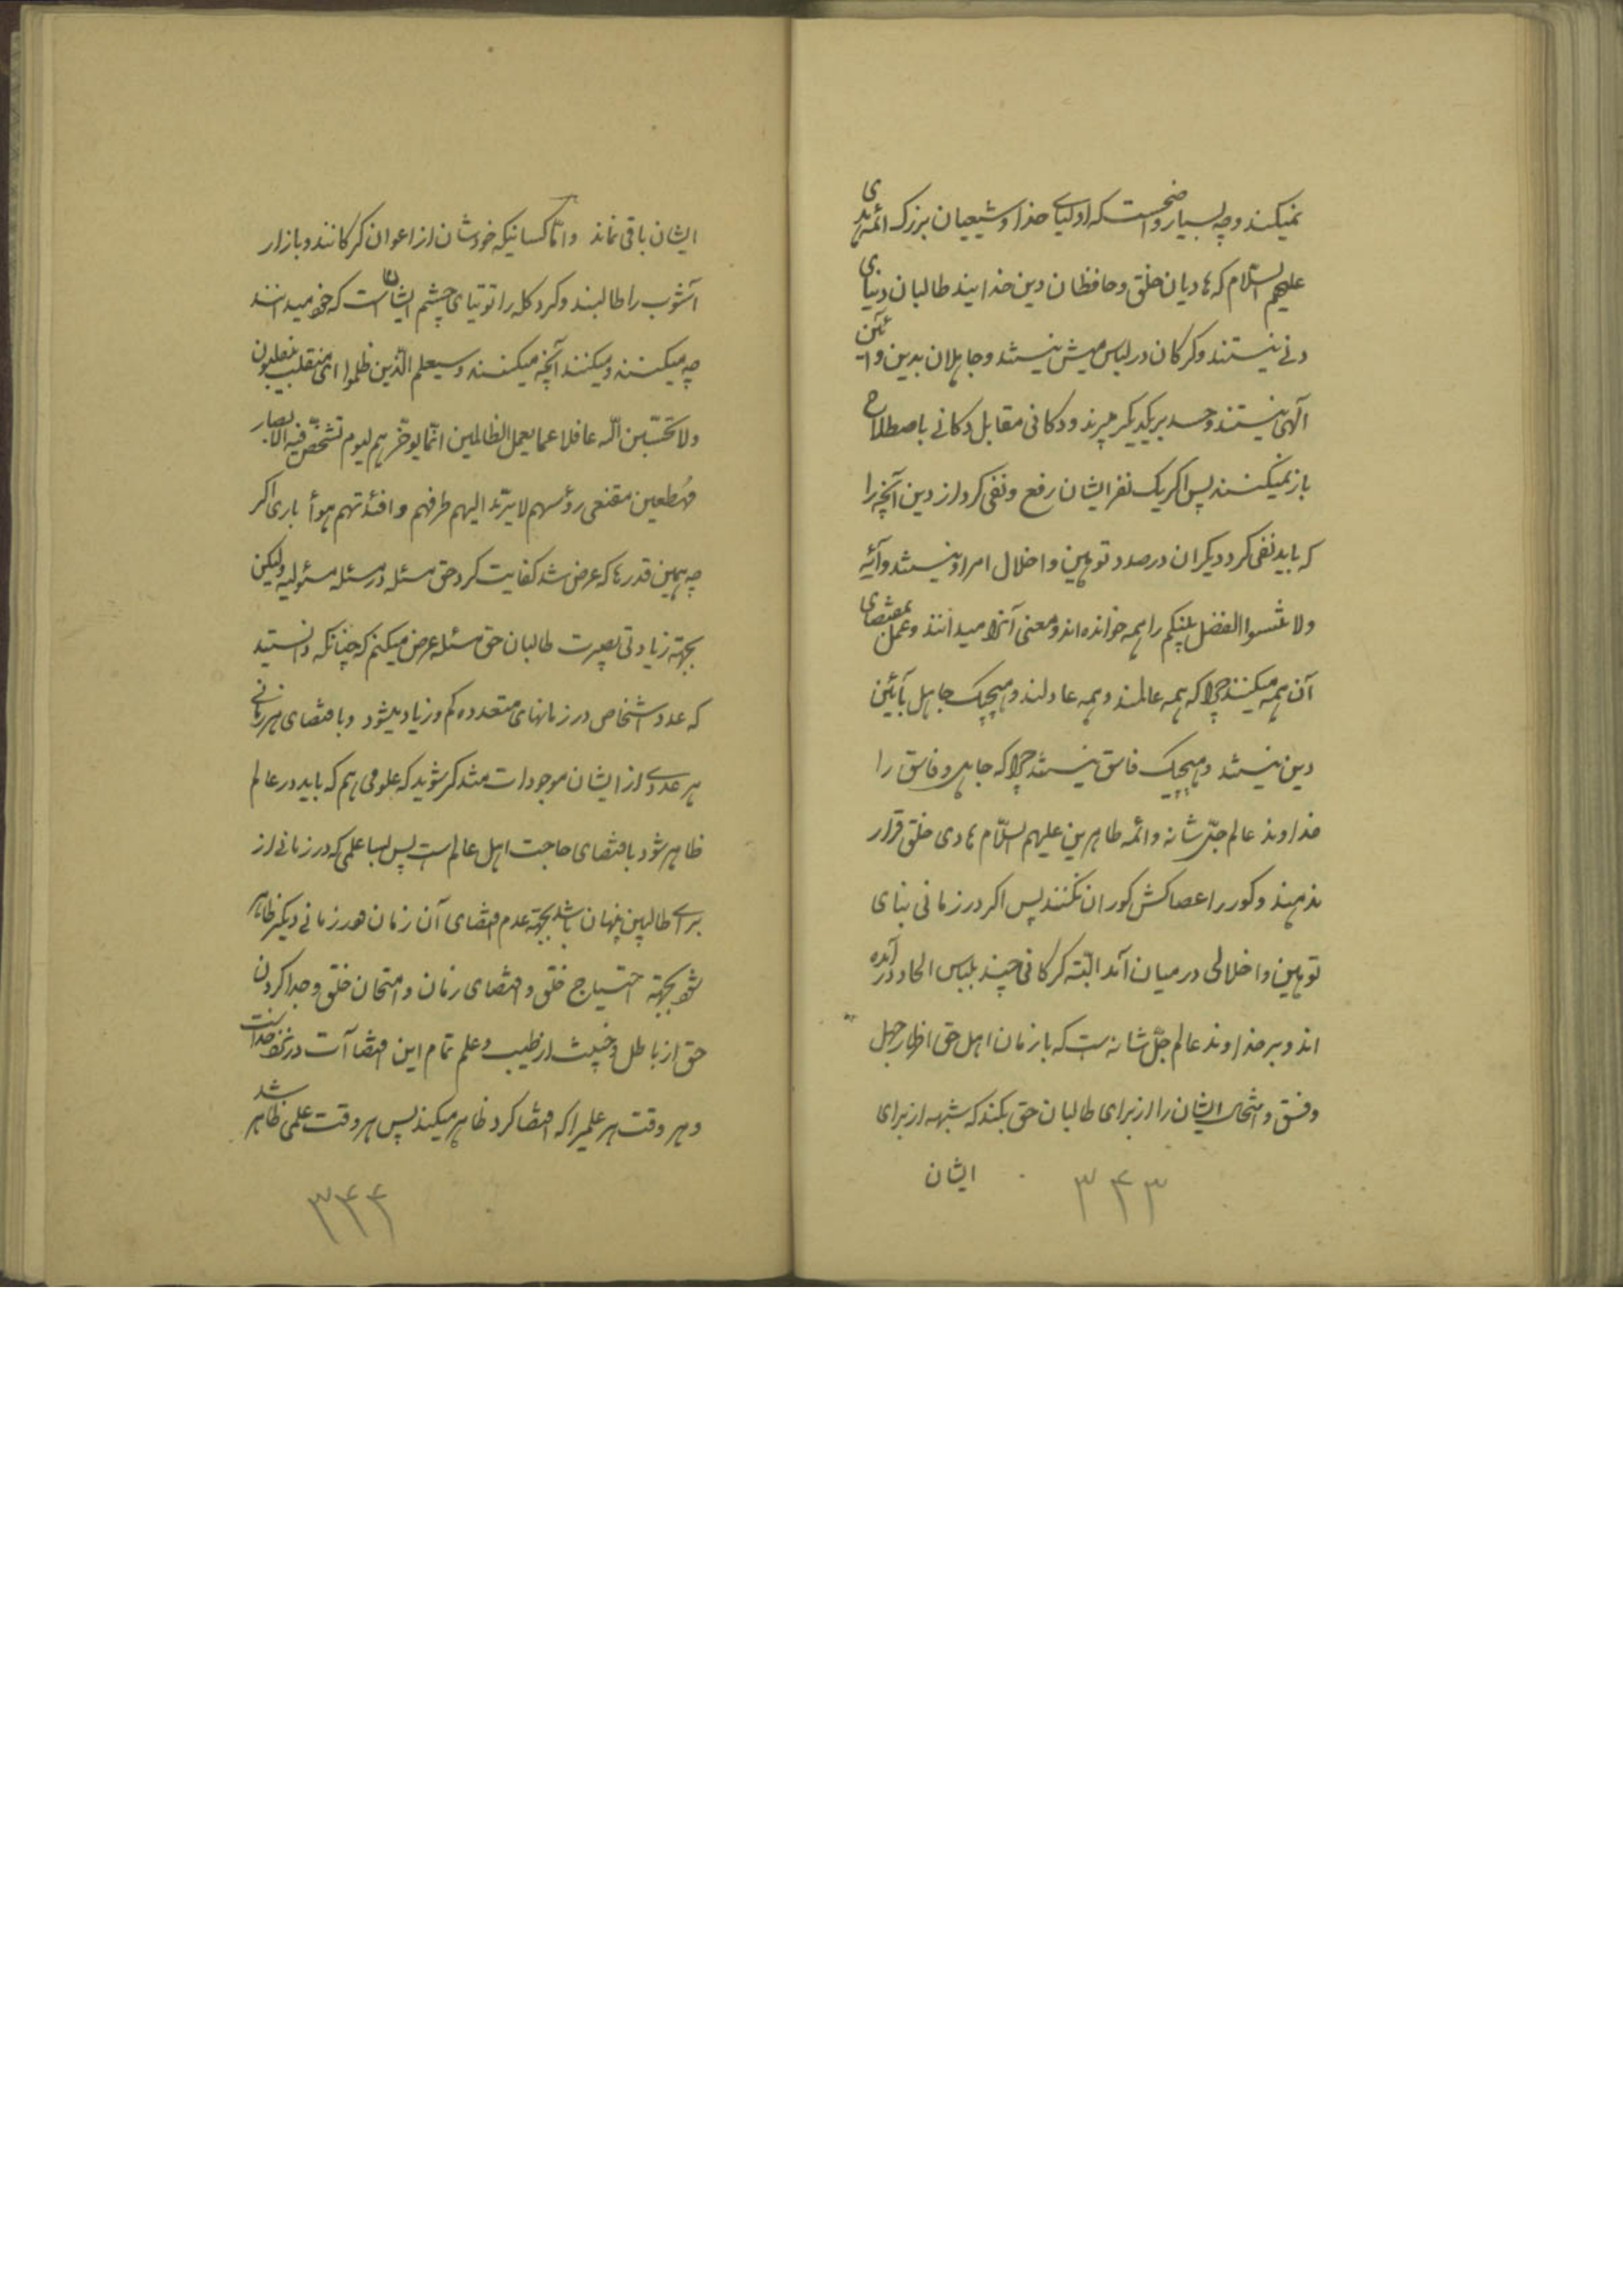 نمیکنند و چه بسیار واضحست که اولیای خدا و شیعیان بزرک ائمه هدی
علیهم السلام که هادیان خلق و حافظان دین خدایند طالبان دنیای
دنی نیستند و کرکان در لباس میش نیستند و جاهلان بدین و آئین
الهی نیستند و حسد بر یکدیکر نمیبرند و دکانی مقابل دکانی باصطلاح
باز نمیکنند پس اکر یک نفر ایشان رفع و نفی کرد از دین آنچه را
که باید نفی کرد دیکران در صدد توهین و اخلال امر او نیستند و آیه
ولا تنسوا الفضل بینکم را همه خوانده‌اند و معنی آنرا میدانند و عمل بمقتضای
آن هم میکنند چرا که همه عالمند و همه عادلند و هیچیک جاهل بآئین
دین نیستند و هیچیک فاسق نیستند چرا که جاهل و فاسق را
خداوند عالم جل شانه و ائمه طاهرین علیهم السلام هادی خلق قرار
ندهند و کور را عصاکش کوران نکنند پس اکر در زمانی بنای
توهین و اخلالی در میان آمد البته کرکانی چند بلباس الحاد در آمده
اند و بر خداوند عالم جل شانه است که باز زمان اهل حق اظهار جهل
و فسق و امتحان ایشان را از برای طالبان حق بکند که شبهه از برای
ایشان
۳۴۳
ایشان باقی نماند و اما کسانیکه خودشان از اعوان کرکانند و بازار
آشوب را طالبند و کرد کله را توتیای چشم ایشان است که خود میدانند
چه میکنند و میکنند آنچه میکنند و سیعلم الذین ظلموا ای منقلب ینقلبون
ولا تحسبن الله غافلا عما یعمل الظالمین انما یوخرهم لیوم تشخص فیه الابصار
مهطعین مقنعی رؤسهم لا یرتد الیهم طرفهم و افئدتهم هوأ باری اکر
چه همین قدرها که عرض شد کفایت کرد حق مسئله در مسئله مسئولیه ولیکن
بجهة زیادتی بصیرت طالبان حق مسئله عرض میکنم که چنانکه دانستید
که عدد اشخاص در زمانهای متعدده کم و زیاد میشود و باقتضای هر زمانی
هر عددی از ایشان موجودات متذکر شوید که علومی هم که باید در عالم
ظاهر شود باقتضای حاجت اهل عالم است پس بسا علمی که در زمانی از
برای طالبین پنهان باشد بجهة عدم اقتضای آن زمان و در زمانی دیکر ظاهر
شود بجهة احتیاج خلق و اقتضای زمان و امتحان خلق و جدا کردن
حق از باطل و خبیث از طیب و علم تمام این اقتضاآت در نزد خداست
و هر وقت هر علمیرا که اقتضا کرد ظاهر میکند پس هر وقت علمی ظاهر شد
۳۴۴